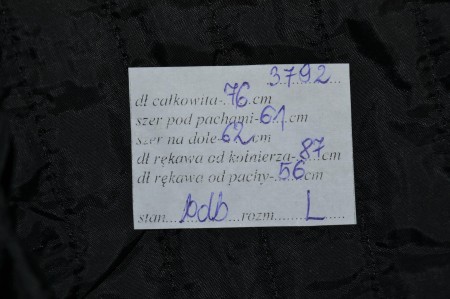 3792
dł całkowita-76.cm
szer pod pachami-61.cm
szer na dole-62.cm
dł rękawa od kołnierza-87.cm
dł rękawa od pachy-56cm
stan...bdb...rozm...L...